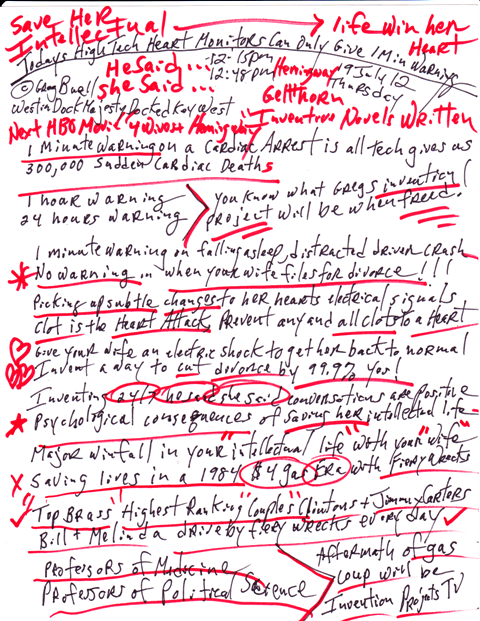 Save Her life win her
Intellectual Heart
Todays High Tech Heart Monitors Can Only Give 1 Min Warning
He Said... 12-15pm
she Said... 12:48pm Hemingway 19 July 12
© Greg Buell Thursday
Westin Dock Majesty Docked Key West Gellhorn
Next HBO Movie 4 Wives Hemingway Inventive Novels Written
1 Minute Warning on a Cardiac Arrest is all tech gives us
300,000 Sudden Cardiac Deaths
1 hour warning you know what Gregs inventing
24 hours warning project will be when freed.
1 minute warning on falling asleep, distracted driver crash
No warning... when your wife files for divorce!!!
Picking up subtle changes to her hearts electrical signals
Clot is the Heart Attack, Prevent any and all clots to a Heart
Give your wife an electric shock to get her back to normal
Invent a way to cut divorce by 99.9% yes!
Inventing 24/7 he said she said conversations are positive
Psychological consequences of saving her intellectual life
Major winfall in your "intellectual life" with your "wife"
Saving lives in a 1984 $4 gas Era with Fiery wrecks
"Top Brass" Highest Ranking "Couples" Clintons + Jimmy Carters
Bill + Melinda drive by fiery wrecks every day
Professors of Medicine Aftermath of gas
Professors of Political Science coup will be
Invention Projects TV